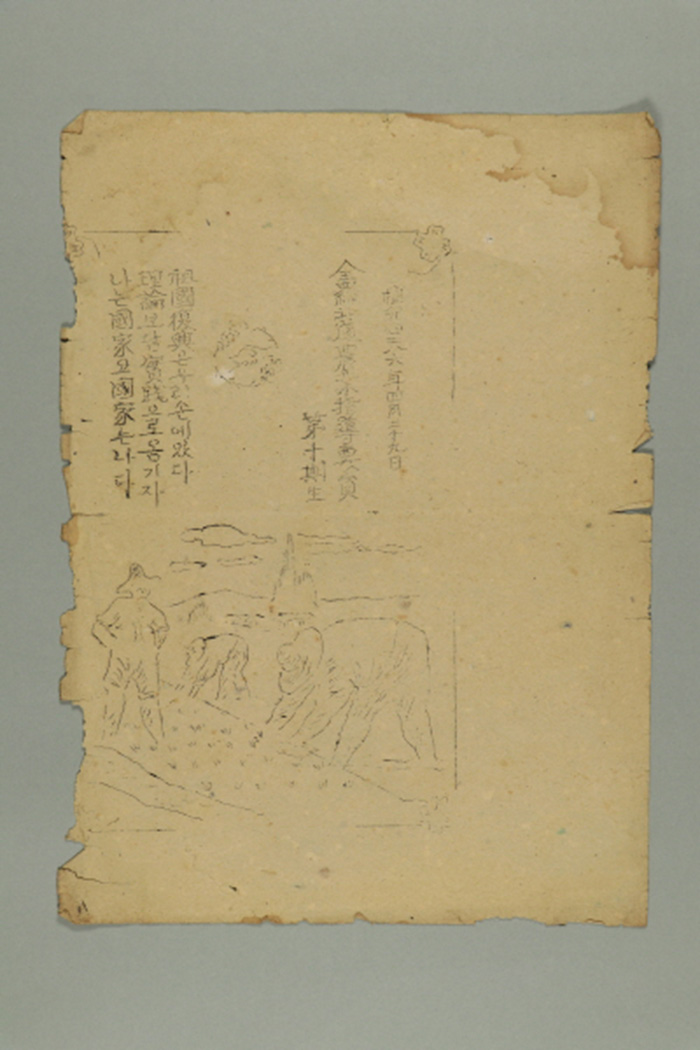 檀紀四二八六年四月二十九日
指導要員
第十期生
祖國復興은 우리 손에 있다
理論보다 實踐으로 옮기자
나는 國家요 國家는 나다